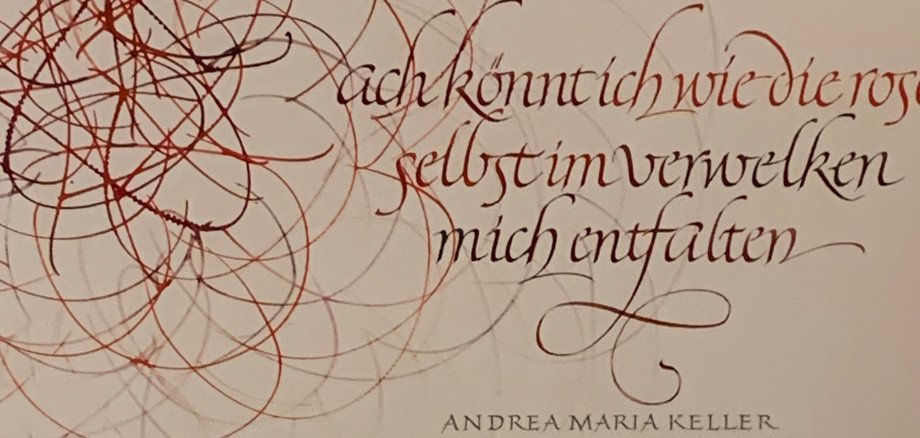 ach könnt ich wie die ros
selbst im verwelken
mich entfalten
ANDREA MARIA KELLER